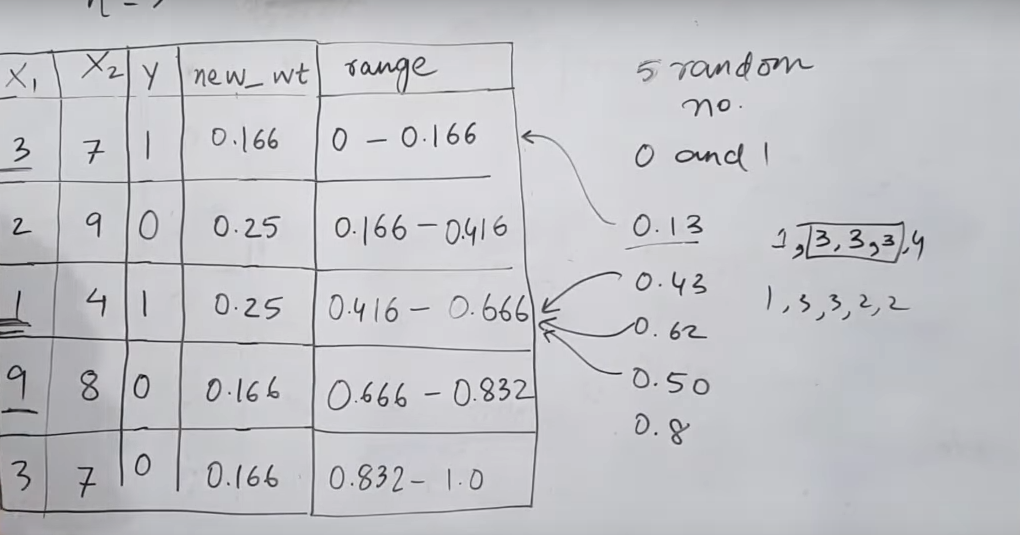 X₁ X₂ Y new_wt range
3 7 1 0.166 0 - 0.166
2 9 0 0.25 0.166 - 0.416
1 4 1 0.25 0.416 - 0.666
9 8 0 0.166 0.666 - 0.832
3 7 0 0.166 0.832 - 1.0
5 random
no.
0 and 1
0.13
0.43
0.62
0.50
0.8
1, 3, 3, 3, 4
1, 3, 3, 2, 2